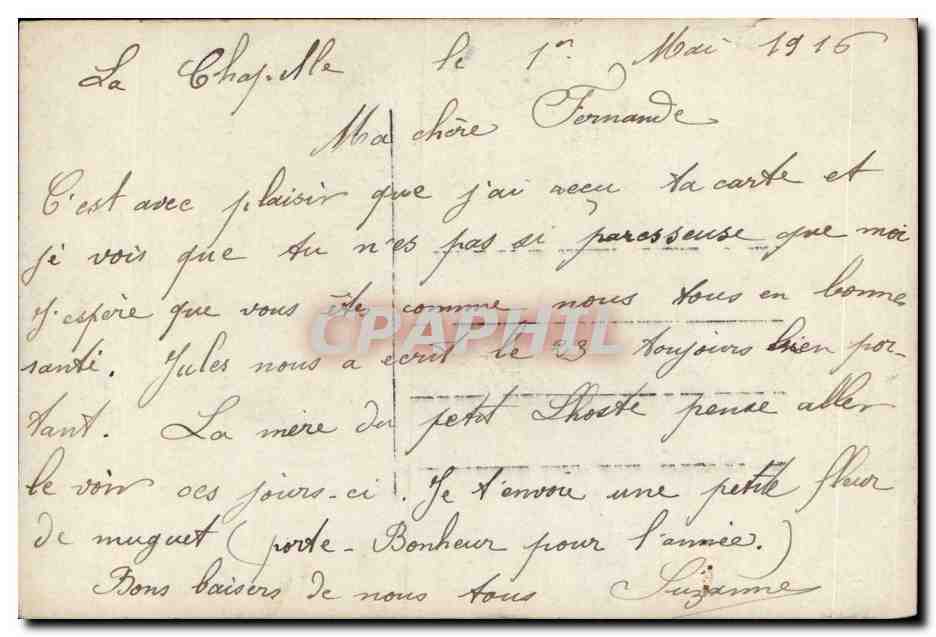 La Chapelle le 1er Mai 1916
Ma chère Fernande
C'est avec plaisir que j'ai reçu ta carte et
je vois que tu n'es pas si paresseuse que moi
J'espère que vous êtes comme nous tous en bonne
santé. Jules nous a écrit le 23 toujours bien por-
tant. La mère du petit Lhoste pense aller
le voir ces jours-ci. Je t'envoie une petite fleur
de muguet (porte-Bonheur pour l'année.)
Bons baisers de nous tous Suzanne
CPAPHIL